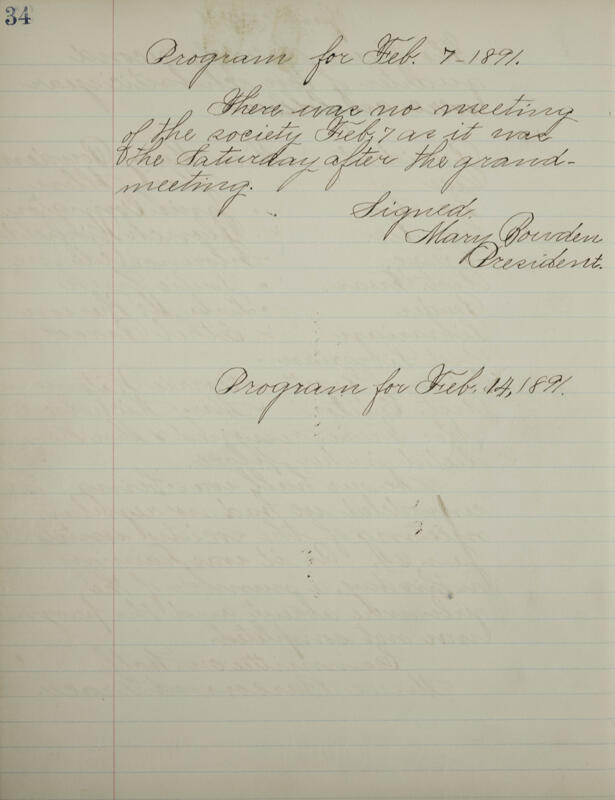 34
Program for Feb. 7-1891.
There was no meeting
of the society Feb, 7 as it was
the Saturday after the grand-
meeting.
Signed.
Mary Bowden
President.
Program for Feb. 14, 1891.